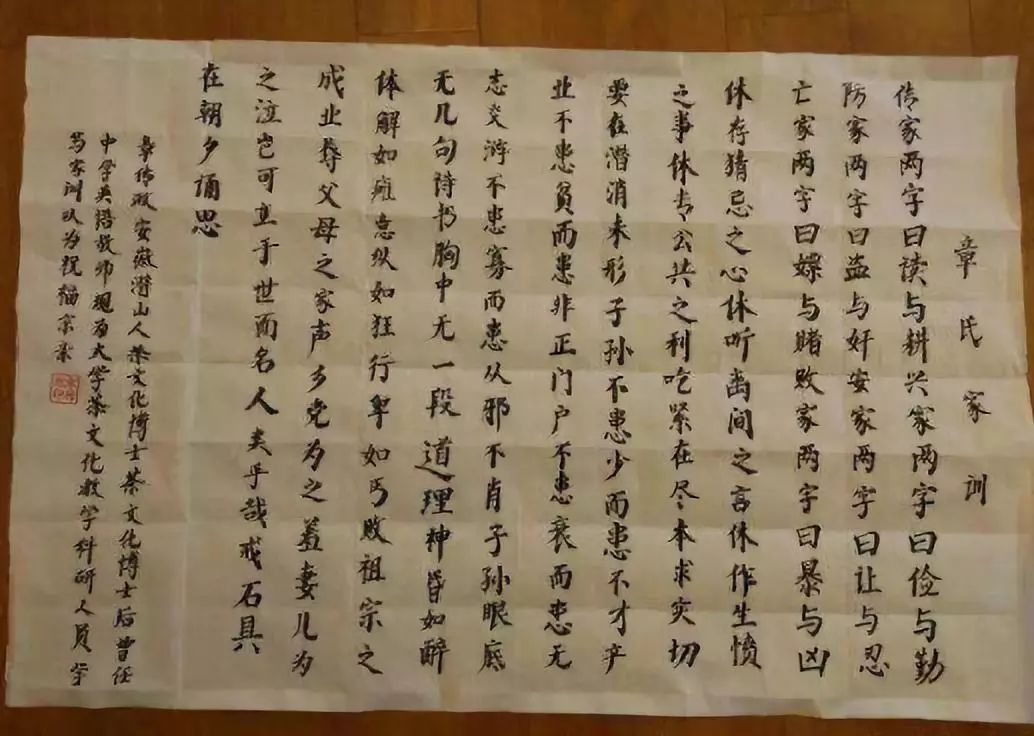 章氏家训
传家两字曰读与耕兴家两字曰俭与勤
防家两字曰盗与奸安家两字曰让与忍
亡家两字曰嫖与赌败家两字曰暴与凶
休存猜忌之心休听离间之言休作生愤
之事休专公共之利吃紧在尽本求实切
要在潜消未形子孙不患少而患不才产
业不患贫而患非正门户不患衰而患无
志交游不患寡而患从邪不肖子孙眼底
无几句诗书胸中无一段道理神昏如醉
体解如瘫意纵如狂行卑如丐败祖宗之
成业辱父母之家声乡党为之羞妻儿为
之泣岂可立于世而名人类乎哉戒石具
在朝夕诵思
章传政安徽潜山人茶文化博士茶文化博士后曾任
中学英语教师现为大学茶文化教学科研人员
家训以为祝福